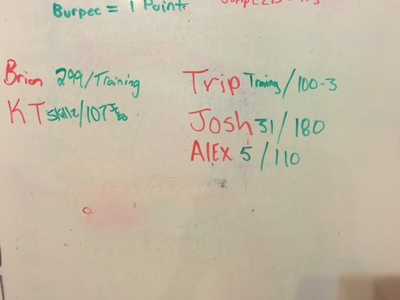 Burpee = 1 Point
Brian 299/Training
KT skillz/107
Trip Traning/100-3
Josh 31/180
ALEX 5/110